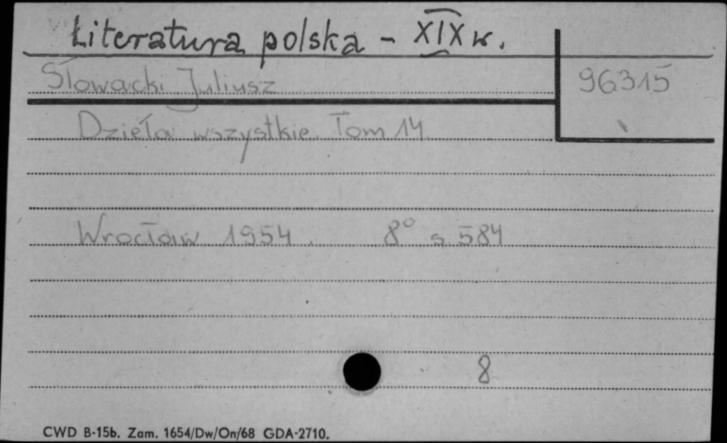 Literatura polska - XIX w.
Słowacki Juliusz
96315
Dzieła wszystkie. Tom 14
Wrocław 1954. 8° s. 584
8
CWD B-15b. Zam. 1654/Dw/On/68 GDA-2710.